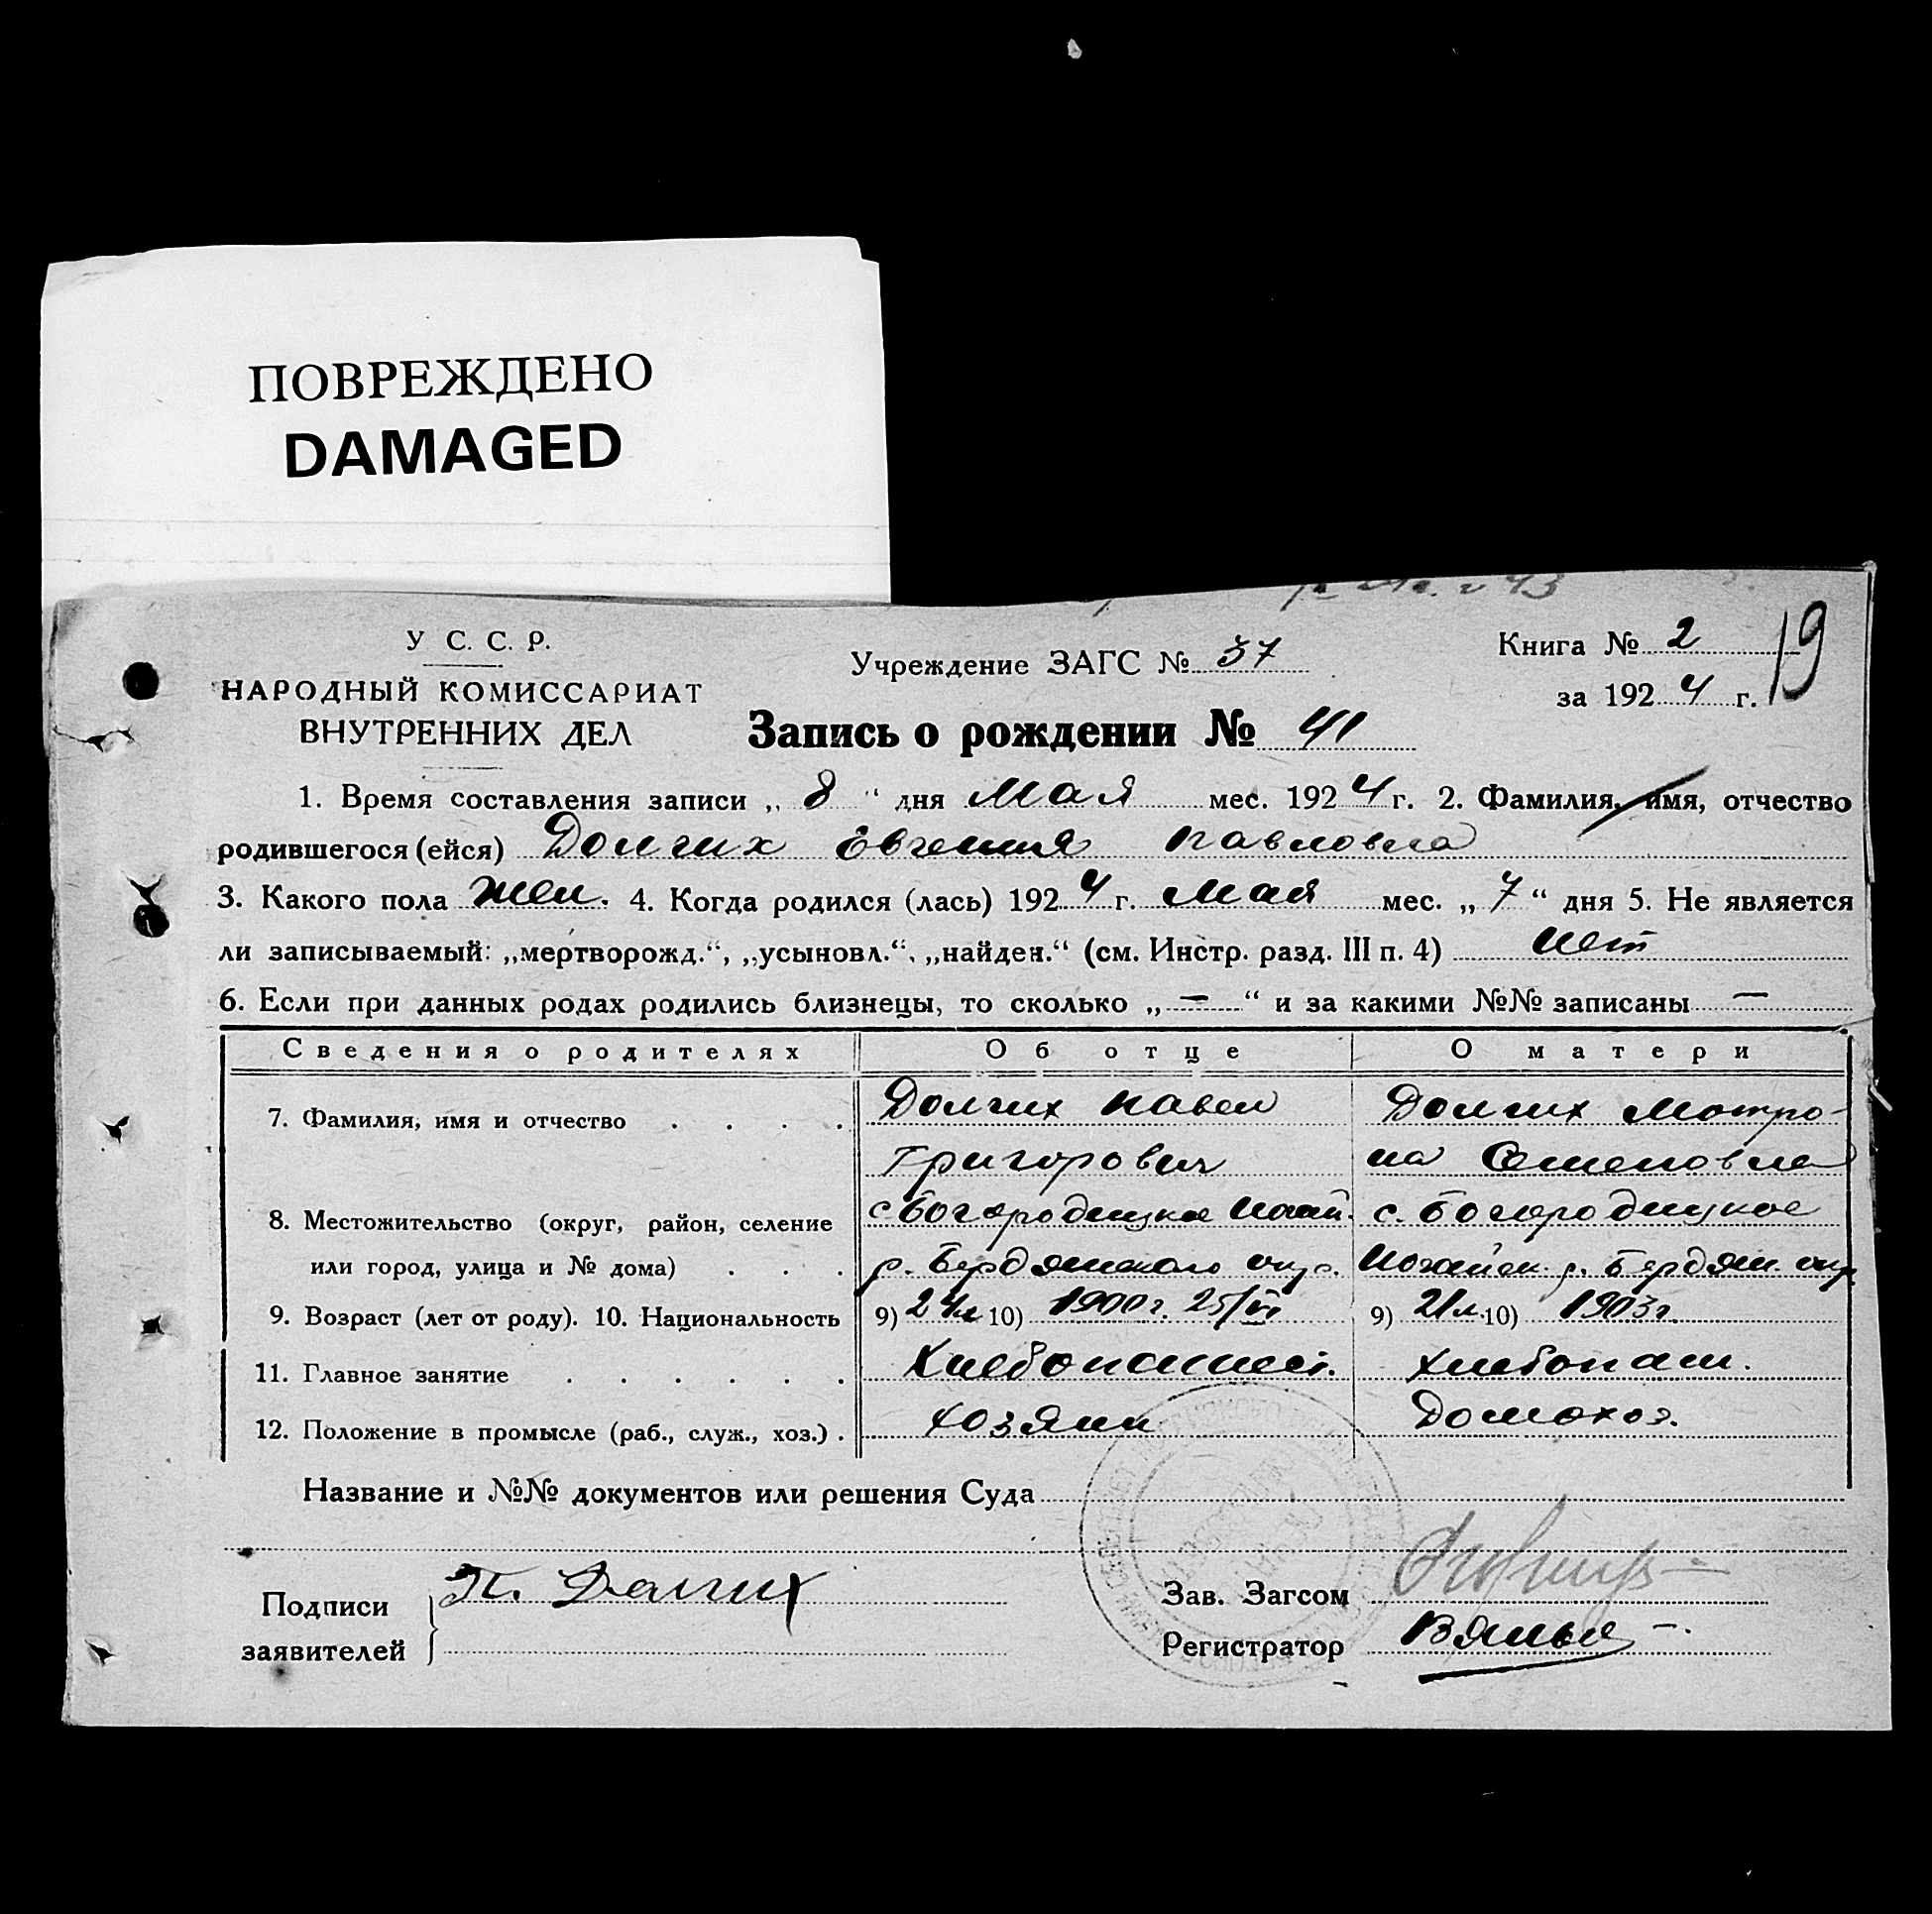 ПОВРЕЖДЕНО
DAMAGED
У. С. С. Р.
НАРОДНЫЙ КОМИССАРИАТ
ВНУТРЕННИХ ДЕЛ
Учреждение ЗАГС № 37
Книга № 2
за 1924 г.
19
Запись о рождении № 41
1. Время составления записи „ 8 “ дня Мая мес. 1924 г. 2. Фамилия, имя, отчество
родившегося (ейся) Долгих Евгения Павловна
3. Какого пола жен. 4. Когда родился (лась) 1924 г. Мая мес. „ 7 “ дня 5. Не является
ли записываемый: „мертворожд.“, „усыновл.“, „найден.“ (см. Инстр. разд. III п. 4) Нет
6. Если при данных родах родились близнецы, то сколько „ — “ и за какими №№ записаны —
Сведения о родителях Об отце О матери
7. Фамилия, имя и отчество . . . . Долгих Павел Долгих Мотро-
Григорович на Семеновна
8. Местожительство (округ, район, селение с. Богородицкое с. Богородицкое
или город, улица и № дома) . . . р. Бердянского окр. Ногайск. р. Бердян. окр.
9. Возраст (лет от роду). 10. Национальность 9) 24 л. 10) 1900 г. 25/VI 9) 21 л. 10) 1903 г.
11. Главное занятие . . . . . . Хлебопашес. хлебопаш.
12. Положение в промысле (раб., служ., хоз.) . хозяин Домохоз.
Название и №№ документов или решения Суда
Подписи
заявителей
П. Долгих
Зав. Загсом
Регистратор